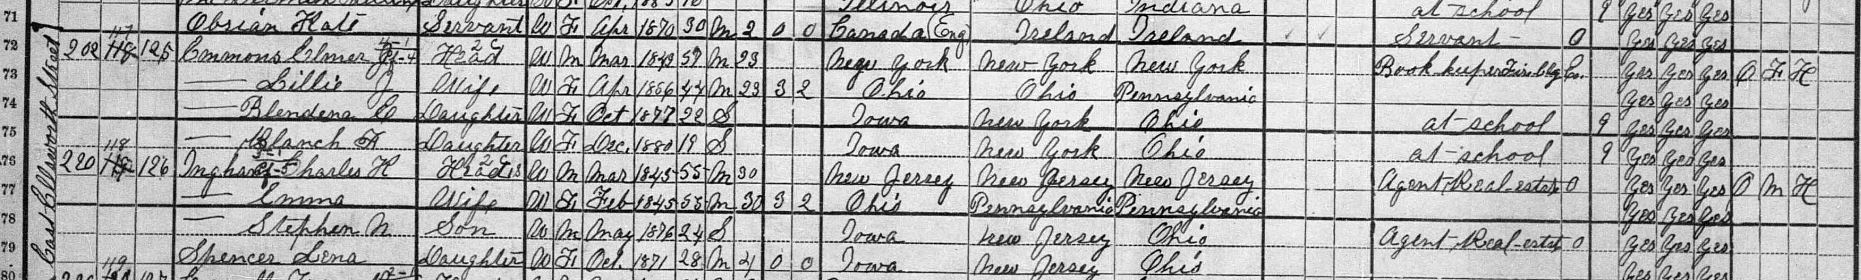 Daughter W F Oct. 1883 Illinois Ohio Indiana at school 9 Yes Yes Yes
71 Obrian Kate Servant W F Apr 1870 30 M 2 0 0 Canada (Eng) Ireland Ireland Servant 0 Yes Yes Yes
72 202 125 Emmons Elmer Head W M Mar 1843 57 M 23 New York New York New York Book keeper Yes Yes Yes O F H
73 — Lillie J Wife W F Apr 1856 44 M 23 3 2 Ohio Ohio Pennsylvania Yes Yes Yes
74 — Blendena C Daughter W F Oct 1877 22 S Iowa New York Ohio at school 9 Yes Yes Yes
75 — Blanch Daughter W F Dec. 1880 19 S Iowa New York Ohio at school 9 Yes Yes Yes
76 220 118 126 Ingham Charles H Head W M Mar 1845 55 M 30 New Jersey New Jersey New Jersey Agent Real-estate 0 Yes Yes Yes O M H
77 — Emma Wife W F Feb 1845 55 M 30 3 2 Ohio Pennsylvania Pennsylvania Yes Yes Yes
78 — Stephen N Son W M May 1876 24 S Iowa New Jersey Ohio Agent Real-estate 0 Yes Yes Yes
79 Spencer Lena Daughter W F Oct. 1871 28 M 21 0 0 Iowa New Jersey Ohio Yes Yes Yes
80 119 127
East Ellsworth Street